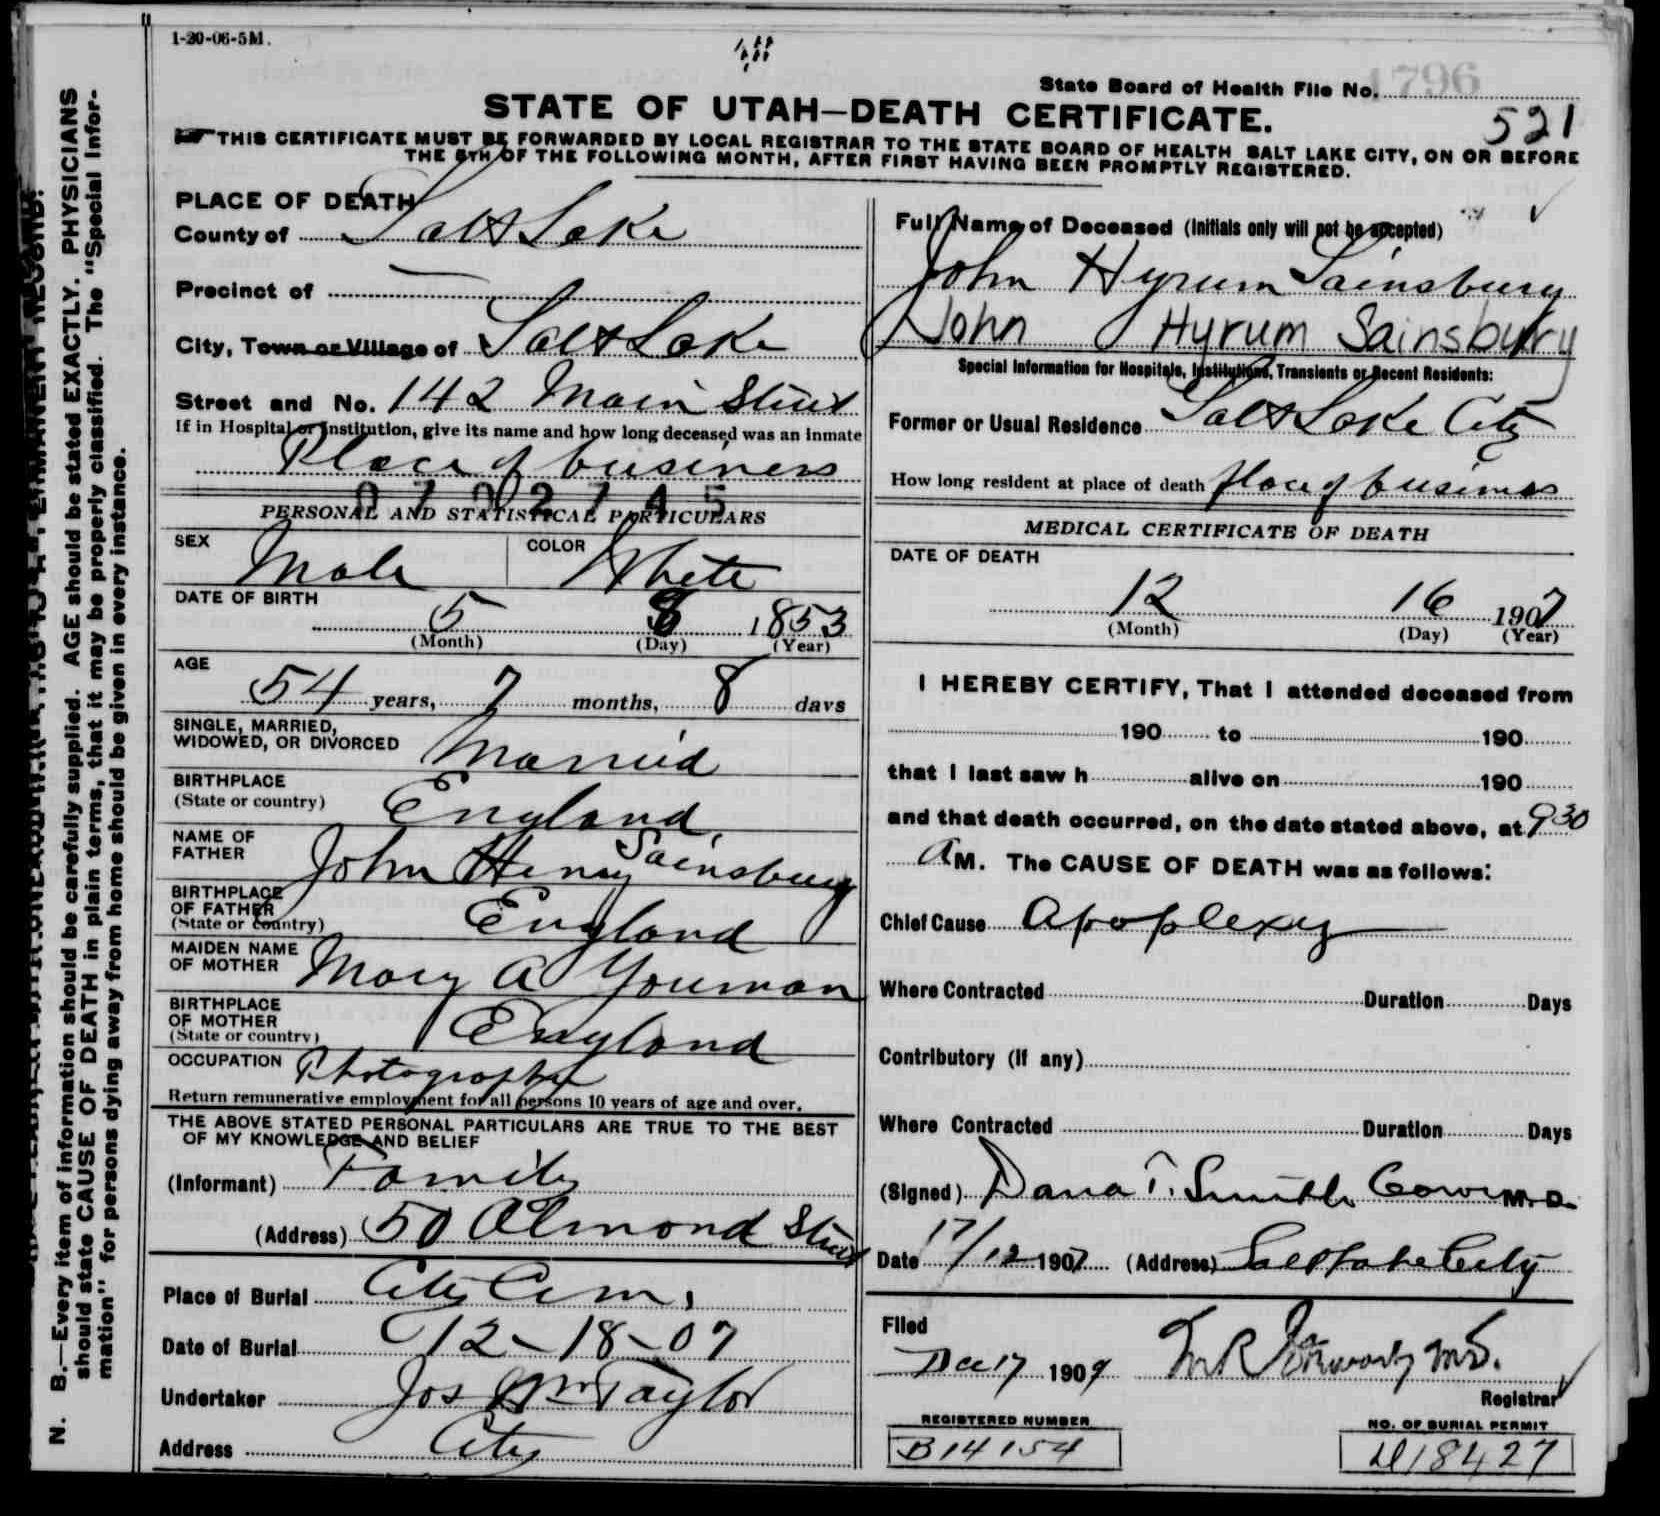 1-20-06-5M.
State Board of Health File No. 1796
STATE OF UTAH—DEATH CERTIFICATE.
521
THIS CERTIFICATE MUST BE FORWARDED BY LOCAL REGISTRAR TO THE STATE BOARD OF HEALTH SALT LAKE CITY, ON OR BEFORE
THE 5TH OF THE FOLLOWING MONTH, AFTER FIRST HAVING BEEN PROMPTLY REGISTERED.
PLACE OF DEATH
County of Salt Lake
Precinct of
City, Town or Village of Salt Lake
Street and No. 142 Main Street
If in Hospital or Institution, give its name and how long deceased was an inmate
Place of business
0702745
PERSONAL AND STATISTICAL PARTICULARS
SEX Male COLOR White
DATE OF BIRTH
5 8 1853
(Month) (Day) (Year)
AGE
54 years, 7 months, 8 days
SINGLE, MARRIED,
WIDOWED, OR DIVORCED Married
BIRTHPLACE
(State or country) England
NAME OF
FATHER John Henry Sainsbury
BIRTHPLACE
OF FATHER
(State or country) England
MAIDEN NAME
OF MOTHER Mary A Youman
BIRTHPLACE
OF MOTHER
(State or country) England
OCCUPATION Photographer
Return remunerative employment for all persons 10 years of age and over.
THE ABOVE STATED PERSONAL PARTICULARS ARE TRUE TO THE BEST
OF MY KNOWLEDGE AND BELIEF
(Informant) Family
(Address) 50 Almond Street
Place of Burial City Cem.
Date of Burial 12-18-07
Undertaker Jos Wm Taylor
Address City
Full Name of Deceased (Initials only will not be accepted)
John Hyrum Sainsbury
John Hyrum Sainsbury
Special Information for Hospitals, Institutions, Transients or Recent Residents:
Former or Usual Residence Salt Lake City
How long resident at place of death place of business
MEDICAL CERTIFICATE OF DEATH
DATE OF DEATH
12 16 1907
(Month) (Day) (Year)
I HEREBY CERTIFY, That I attended deceased from
190 to 190
that I last saw h alive on 190
and that death occurred, on the date stated above, at 9 30
A M. The CAUSE OF DEATH was as follows:
Chief Cause Apoplexy
Where Contracted Duration Days
Contributory (If any)
Where Contracted Duration Days
(Signed) Dana T. Smith M.D.
Date 17/12 1907 (Address) Salt Lake City
Filed
Dec 17 1907 M.D.
Registrar
REGISTERED NUMBER
B14154
NO. OF BURIAL PERMIT
18427
N. B.—Every item of information should be carefully supplied. AGE should be stated EXACTLY. PHYSICIANS
should state CAUSE OF DEATH in plain terms, that it may be properly classified. The "Special Infor-
mation" for persons dying away from home should be given in every instance.